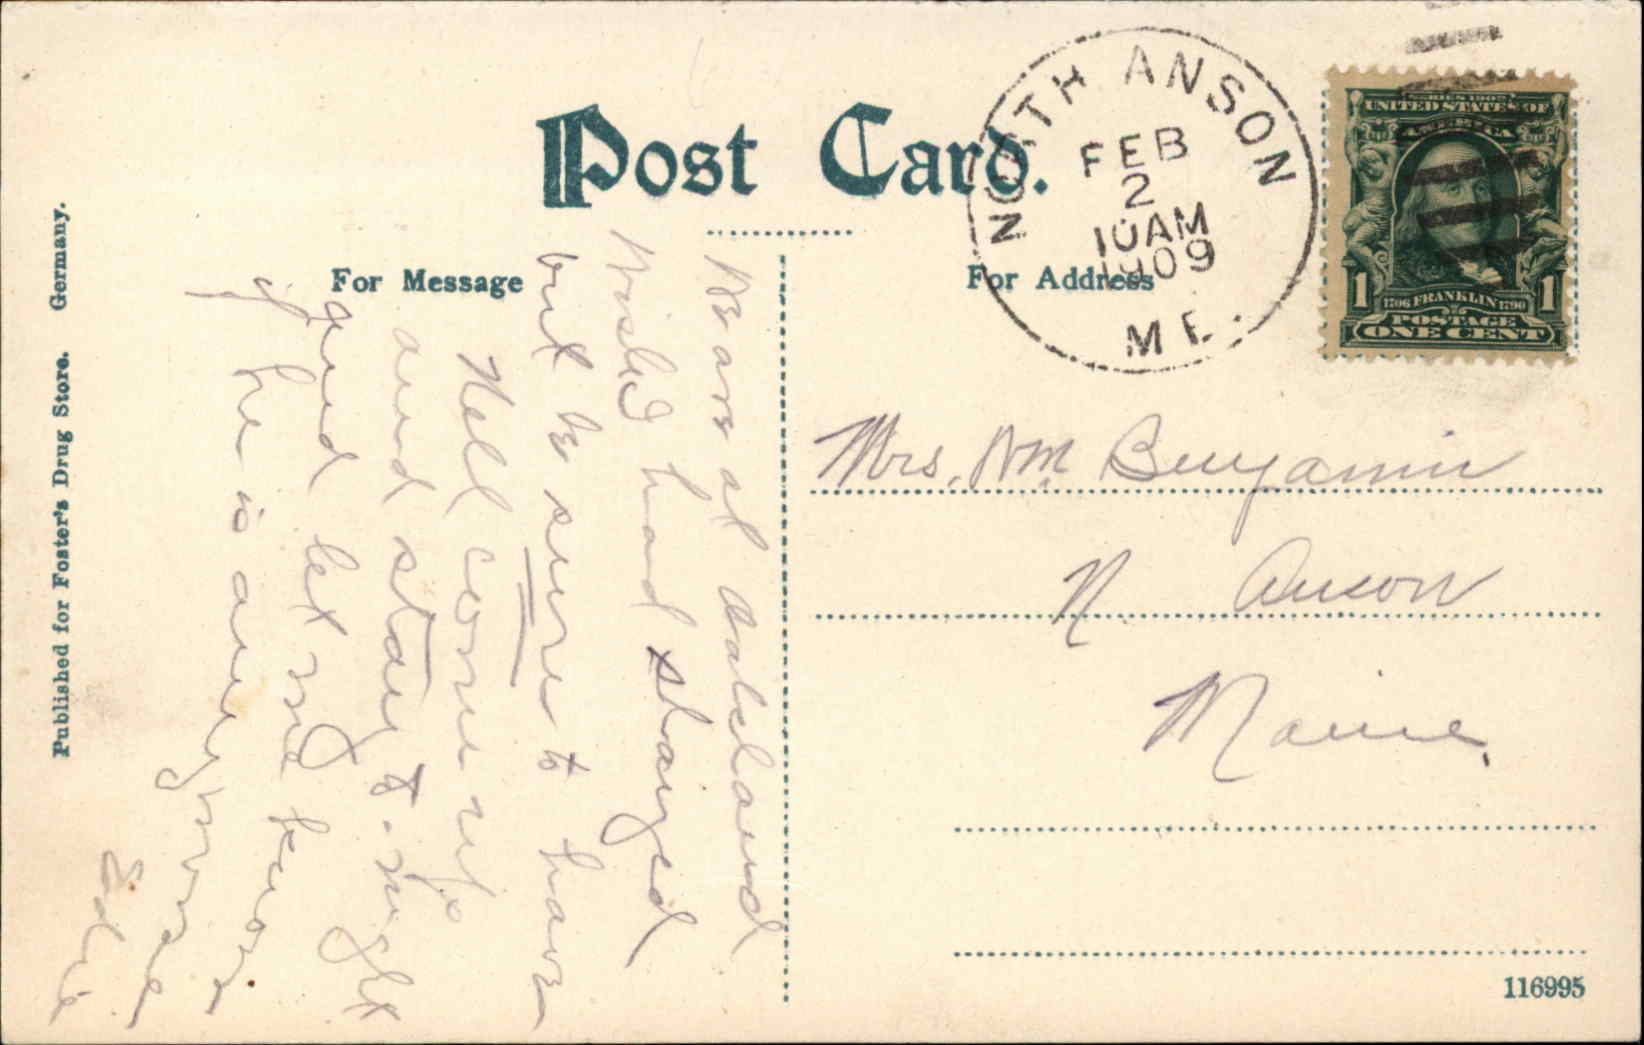 Post Card.
NORTH ANSON
FEB
2
10AM
1909
ME.
SERIES 1902
UNITED STATES OF
AMERICA
1 1
1706 FRANKLIN 1790
POSTAGE
ONE CENT
For Message
For Address
wished had stayed
but be sure to have
Nell come up
and stay to-night
and let me know
if he is
Edie
Mrs. Wm Benjamin
N Anson
Maine.
Published for Foster's Drug Store. Germany.
116995